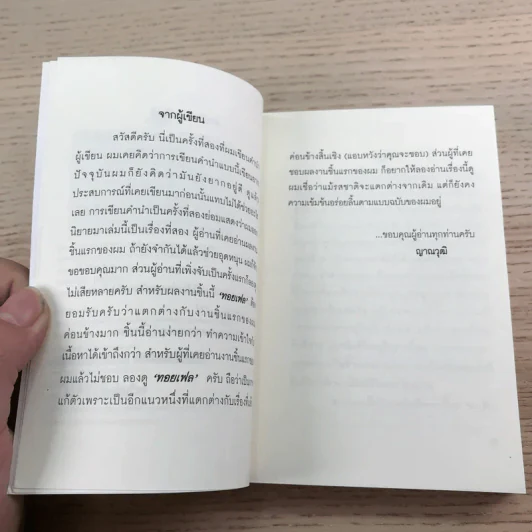 จากผู้เขียน
สวัสดีครับ นี่เป็นครั้งที่สองที่ผมเขียนคำนำ
ผู้เขียน ผมเคยคิดว่าการเขียนคำนำแบบนี้เขียนยาก
ปัจจุบันผมก็ยังคิดว่ามันยังยากอยู่ดี
ประสบการณ์ที่เคยเขียนมาก่อนนั้นแทบไม่ได้ช่วย
เลย การเขียนคำนำเป็นครั้งที่สองย่อมแสดงว่า
นิยายมาเล่มนี้เป็นเรื่องที่สอง ผู้อ่านที่เคยอ่าน
ชิ้นแรกของผม ถ้ายังจำกันได้แล้วช่วยอุดหนุน
ขอขอบคุณมาก ส่วนผู้อ่านที่เพิ่งจับเป็นครั้งแรก
ไม่เสียหลายครับ สำหรับผลงานชิ้นนี้ 'ทอยเฟล'
ยอมรับครับว่าแตกต่างกับงานชิ้นแรกของผม
ค่อนข้างมาก ชิ้นนี้อ่านง่ายกว่า ทำความเข้าใจ
เนื้อหาได้เข้าถึงกว่า สำหรับผู้ที่เคยอ่านงานชิ้นแรก
ผมแล้วไม่ชอบ ลองดู 'ทอยเฟล' ครับ ถือว่าเป็น
แก้ตัวเพราะเป็นอีกแนวหนึ่งที่แตกต่างกับเรื่อง
ค่อนข้างสิ้นเชิง (แอบหวังว่าคุณจะชอบ) ส่วนผู้ที่เคย
ชอบผลงานชิ้นแรกของผม ก็อยากให้ลองอ่านเรื่องนี้ดู
ผมเชื่อว่าแม้รสชาติจะแตกต่างจากเดิม แต่ก็ยังคง
ความเข้มข้นอร่อยลิ้นตามแบบฉบับของผมอยู่
...ขอบคุณผู้อ่านทุกท่านครับ
ญาณวุฒิ